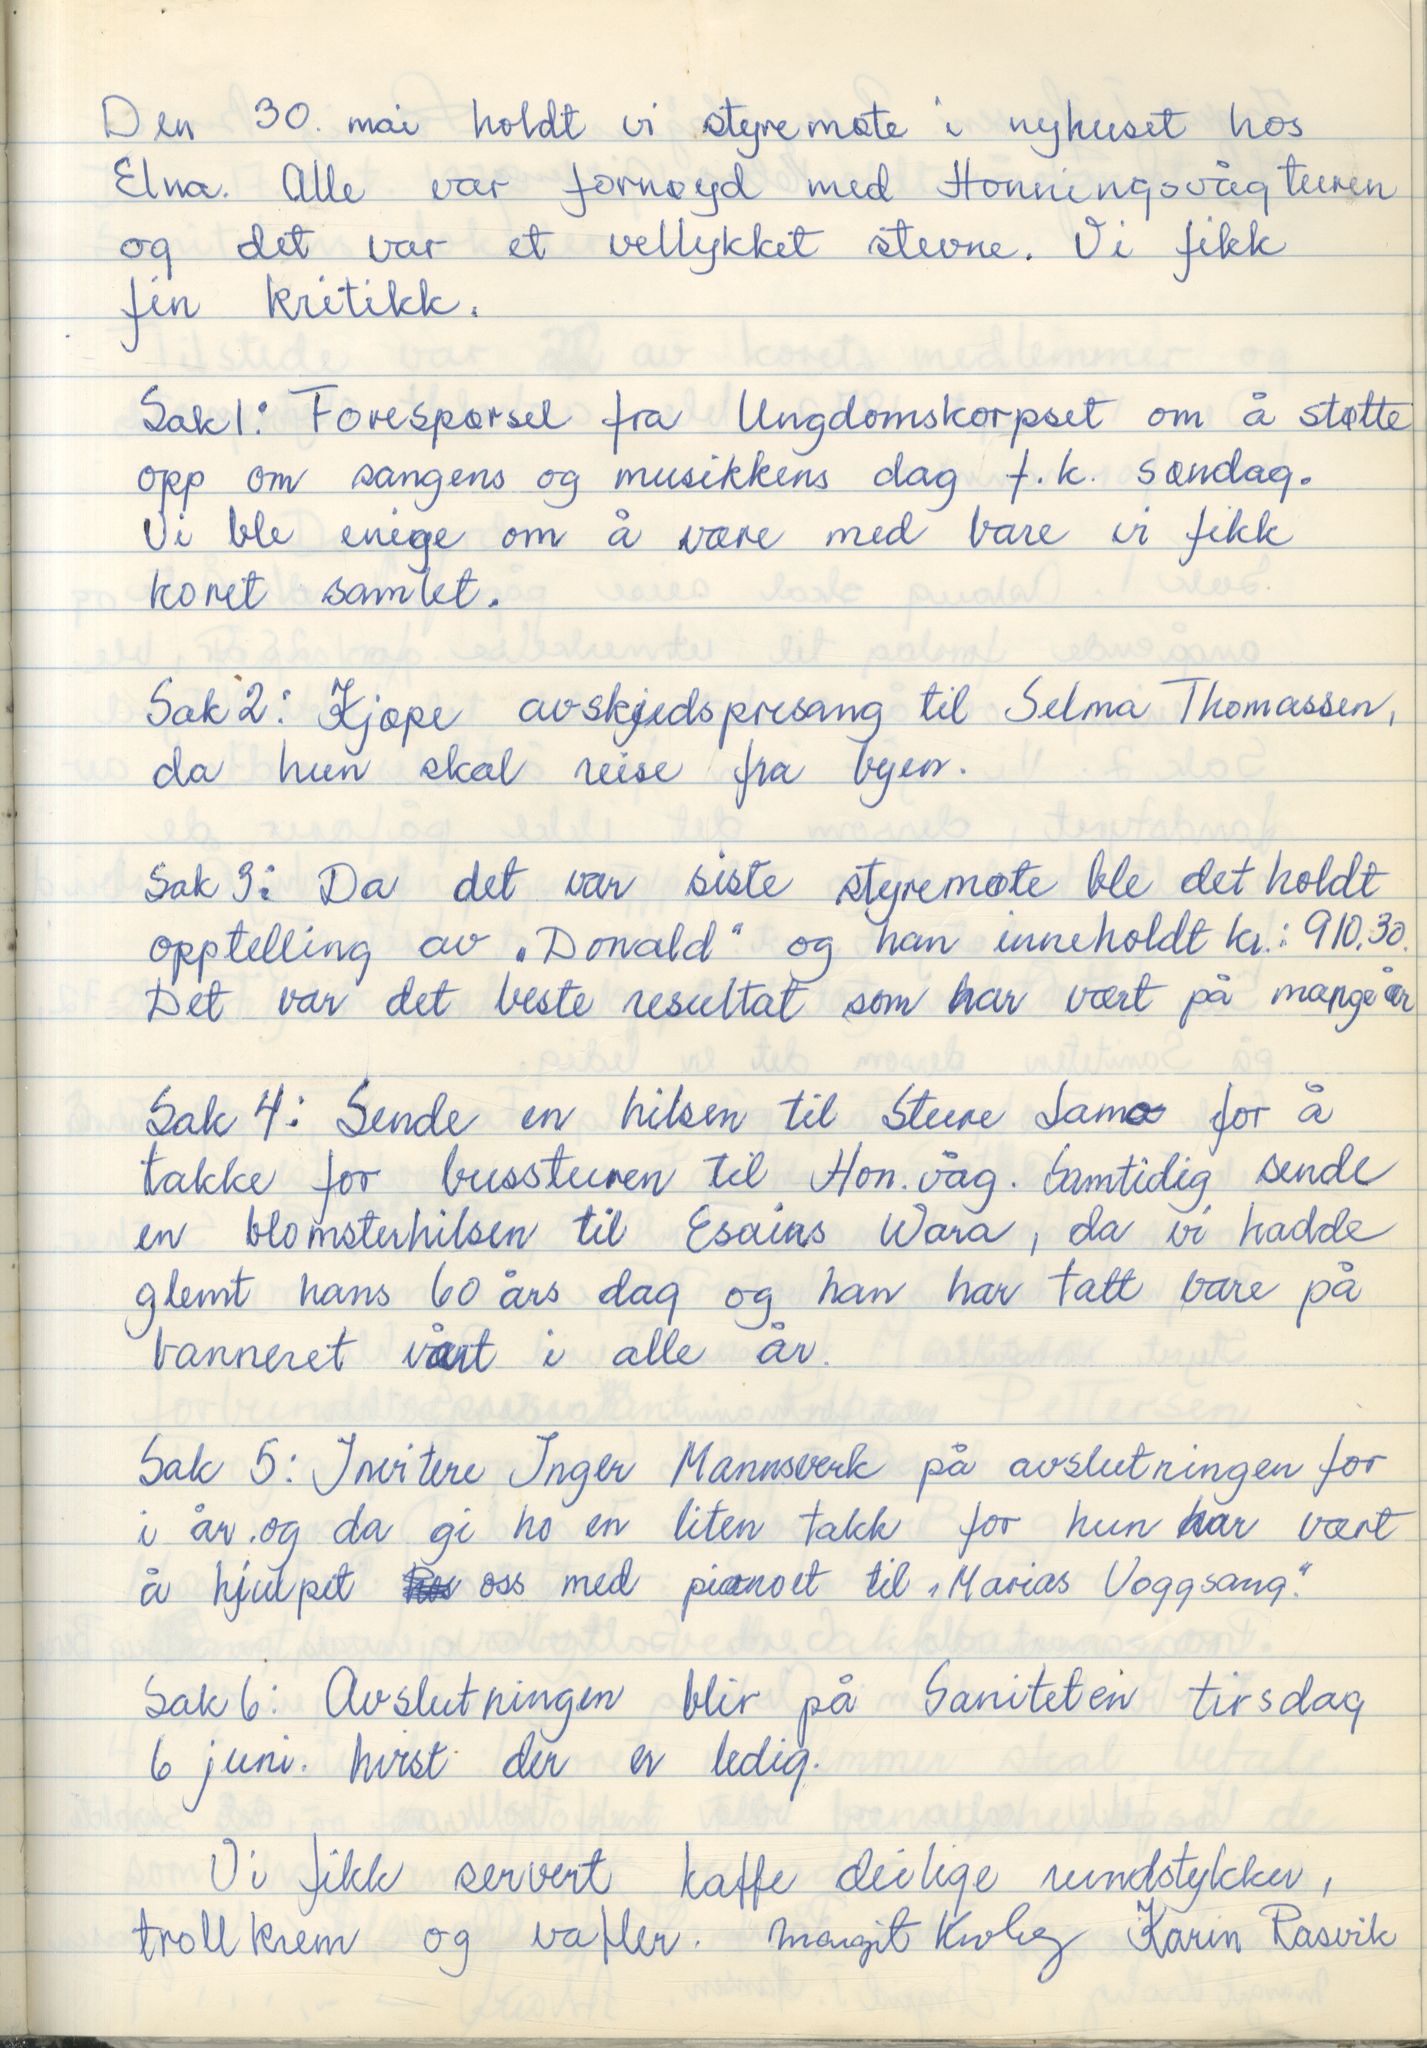 Den 30. mai holdt vi styremøte i nyhuset hos
Elna. Alle var fornøyd med Honningsvågturen
og det var et vellykket stevne. Vi fikk
fin kritikk.
Sak 1: Forespørsel fra Ungdomskorpset om å støtte
opp om sangens og musikkens dag f.k. søndag.
Vi ble enige om å være med bare vi fikk
koret samlet.
Sak 2: Kjøpe avskjedspresang til Selma Thomassen,
da hun skal reise fra byen.
Sak 3: Da det var siste styremøte ble det holdt
opptelling av "Donald" og han inneholdt kr.: 910,30.
Det var det beste resultat som har vært på mange år
Sak 4: Sende en hilsen til Sture Sama for å
takke for bussturen til Hon.våg. Samtidig sende
en blomsterhilsen til Esaias Wara, da vi hadde
glemt hans 60 års dag og han har tatt vare på
banneret vårt i alle år.
Sak 5: Invitere Inger Mannsverk på avslutningen for
i år og da gi ho en liten takk for hun har vært
å hjulpet oss med pianoet til "Marias Voggsang."
Sak 6: Avslutningen blir på Saniteten tirsdag
6 juni. hvist der er ledig.
Vi fikk servert kaffe deilige rundstykker,
trollkrem og vafler. Margit Karin Rasvik